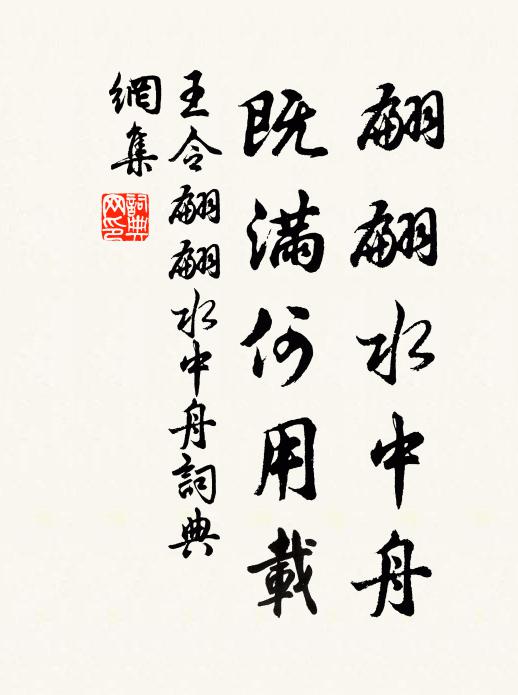 翩翩水中舟
既滿何用載
王令翩翩水中舟詞典
網集
詞典
网印